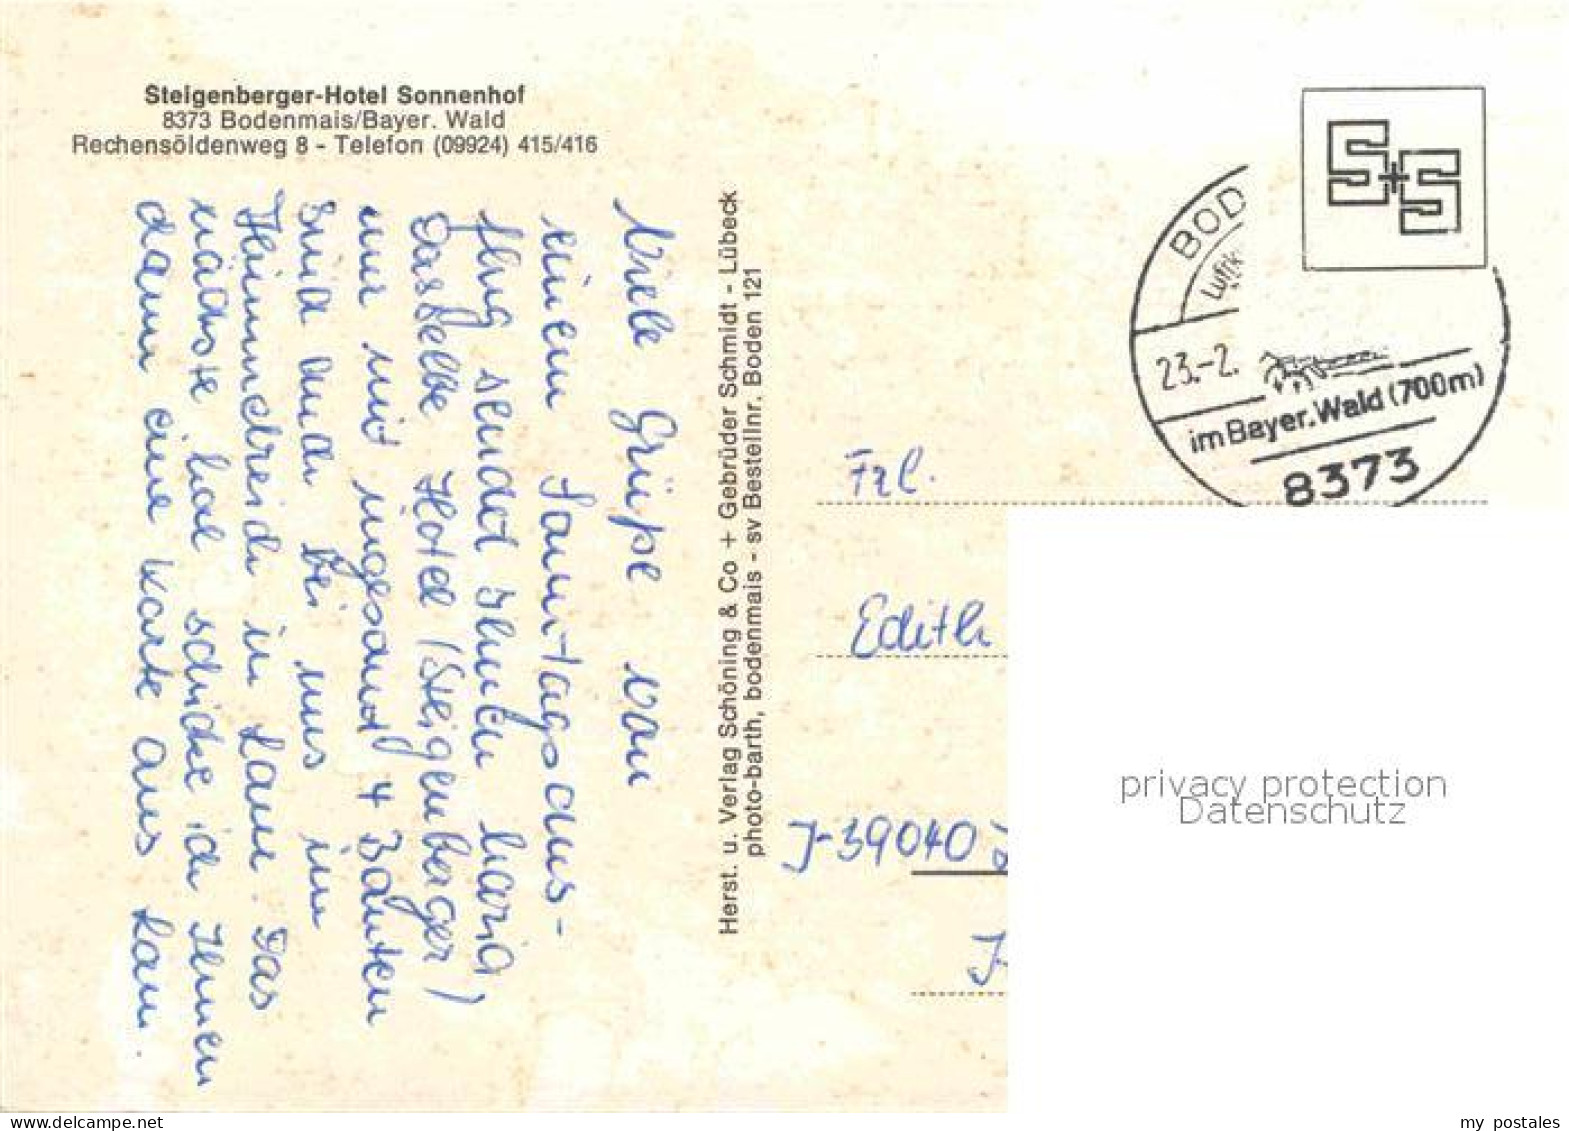 Steigenberger-Hotel Sonnenhof
8373 Bodenmais/Bayer. Wald
Rechensöldenweg 8 - Telefon (09924) 415/416
Viele Grüße von
einem Sonntagsaus-
flug sendet Ihnen Maria
Dasselbe Hotel (Steigenberger)
nur mit insgesamt 4 Bauten
sind auch bei uns im
in Lam. Das
nächste Mal schicke ich Ihnen
dann eine Karte aus Lam.
Herst. u. Verlag Schöning & Co + Gebrüder Schmidt - Lübeck
photo-barth, bodenmais - sv Bestellnr. Boden 121
S+S
BOD
Luftk
23.-2.
im Bayer. Wald (700m)
8373
Frl.
Edith
I-39040
I-
privacy protection
Datenschutz
my postales